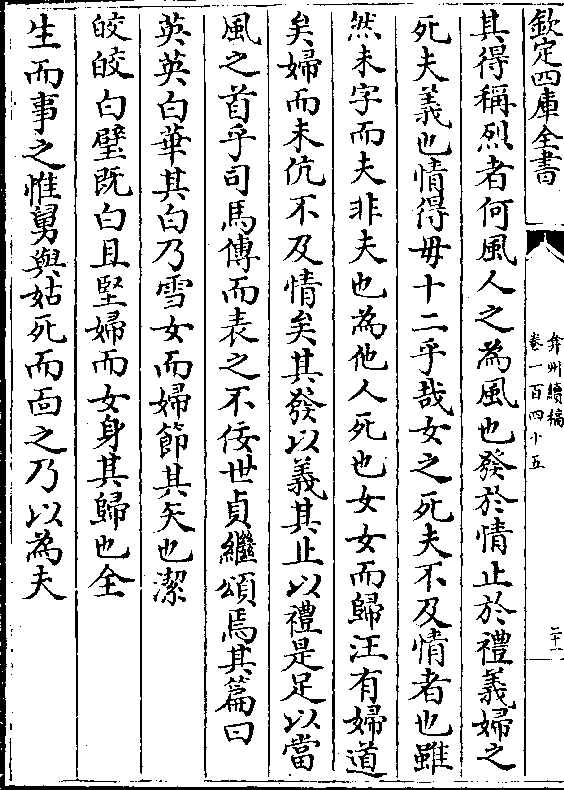 欽定四庫全書
弇州續稿
卷一百四十五
二十一
其得稱烈者何風人之為風也發於情止於禮義婦之
死夫義也情得毋十二乎哉女之死夫不及情者也雖
然未字而夫非夫也為他人死也女女而歸汪有婦道
矣婦而未伉不及情矣其發以義其止以禮是足以當
風之首乎司馬傳而表之不佞世貞繼頌焉其篇曰
英英白華其白乃雪女而婦節其矢也潔
皎皎白璧既白且堅婦而女身其歸也全
生而事之惟舅與姑死而面之乃以為夫